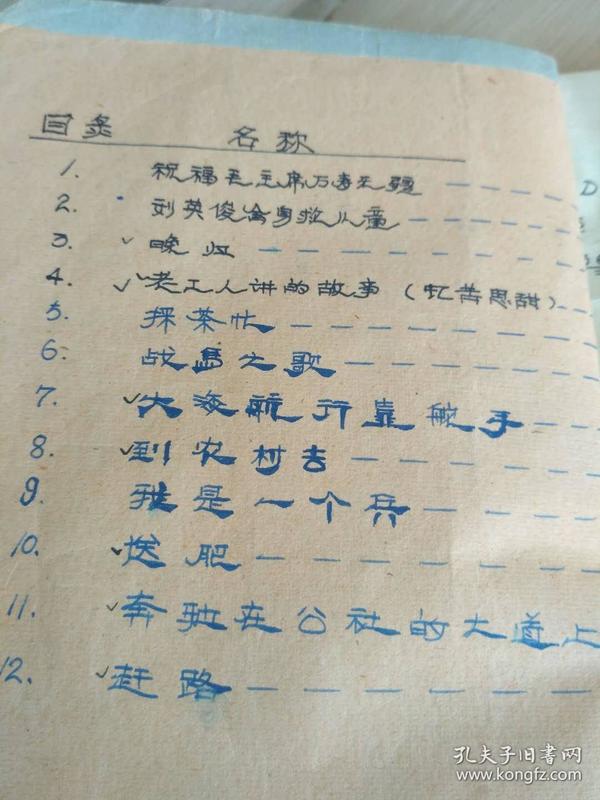 目录 名称
1. 祝福毛主席万寿无疆
2. 刘英俊舍身救儿童
3. ✓晚归
4. ✓老工人讲的故事（忆苦思甜）
5. 採茶忙
6. 战岛之歌
7. ✓大海航行靠舵手
8. ✓到农村去
9. 我是一个兵
10. ✓送肥
11. ✓奔驰在公社的大道上
12. ✓赶路
孔夫子旧书网
www.kongfz.com